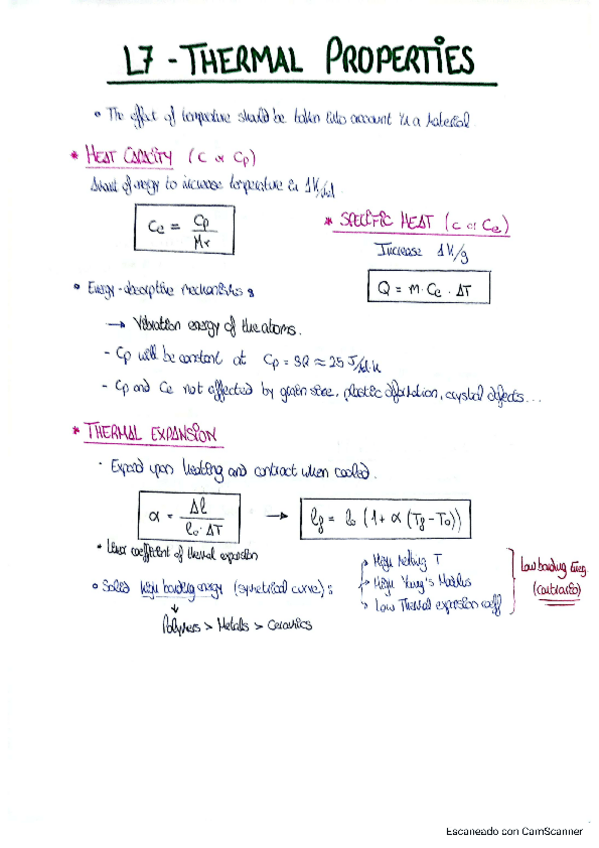 L7 - THERMAL PROPERTIES
• The effect of temperature should be taken into account in a material.
* HEAT CAPACITY (C or Cp)
Amount of energy to increase temperature in 1K/mol.
Ce = Cp / Mr
* SPECIFIC HEAT (c or Ce)
Increase 1K/g
Q = m · Ce · ΔT
• Energy-absorptive mechanisms:
→ Vibration energy of the atoms.
- Cp will be constant at Cp = 3R ≈ 25 J/mol·K
- Cp and Ce not affected by grain size, plastic deformation, crystal defects...
* THERMAL EXPANSION
· Expand upon heating and contract when cooled.
α = Δl / l₀ · ΔT → lf = l₀ (1 + α (Tf - T₀))
* Linear coefficient of thermal expansion
• Solids high bonding energy (symetrical curve):
→ High melting T
→ High Young's Modulus
→ Low Thermal expansion coeff
Low bonding Energ.
(contrario)
Polymers > Metals > Ceramics
Escaneado con CamScanner